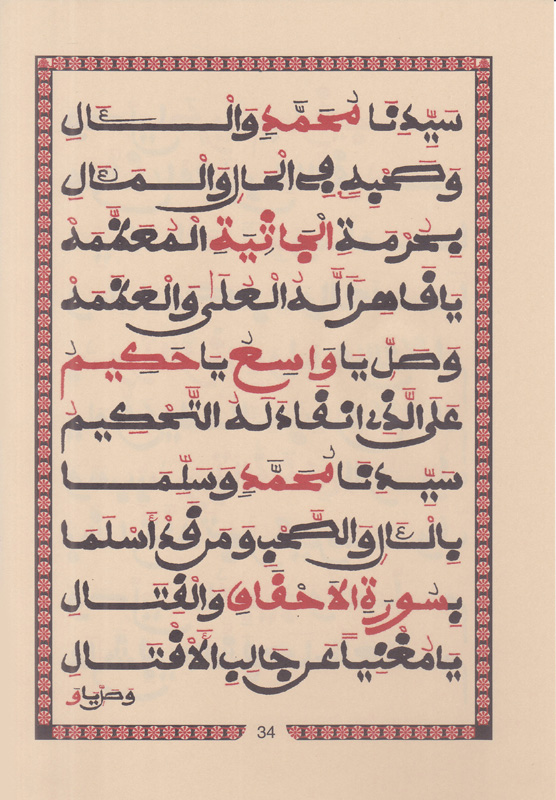 سَيِّدِنَا مُحَمَّدٍ وَالْءَالِ
وَصَحْبِهِ فِي الْحَالِ وَالْمَئَالِ
بِحُرْمَةِ الْجَاثِيَةِ الْمُعَظَّمَهْ
يَا قَاهِرًا لَهُ الْعُلَى وَالْعَظَمَهْ
وَصَلِّ يَا وَاسِعُ يَا حَكِيمُ
عَلَى الَّذِي انْقَادَ لَهُ التَّحْكِيمُ
سَيِّدِنَا مُحَمَّدٍ وَسَلِّمَا
بِالْءَالِ وَالصَّحْبِ وَمَنْ قَدْ أَسْلَمَا
بِسُورَةِ الَاحْقَافِ وَالْقِتَالِ
يَا مُغْنِياً عَن جَالِبِ الْأَقْتَالِ
وَصَلِّ يَا وَ
34